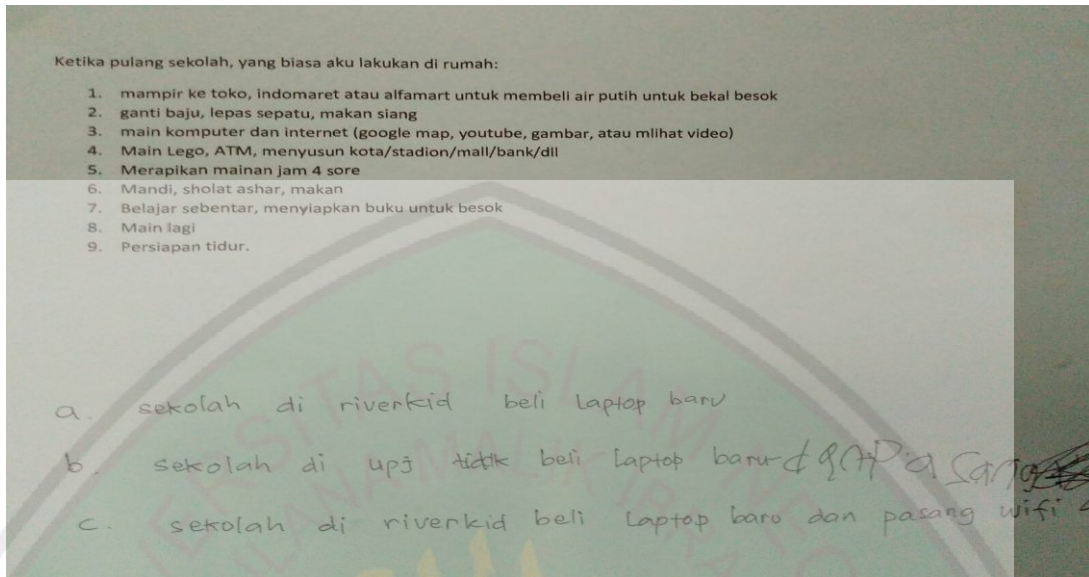 Ketika pulang sekolah, yang biasa aku lakukan di rumah:
1. mampir ke toko, indomaret atau alfamart untuk membeli air putih untuk bekal besok
2. ganti baju, lepas sepatu, makan siang
3. main komputer dan internet (google map, youtube, gambar, atau mlihat video)
4. Main Lego, ATM, menyusun kota/stadion/mall/bank/dll
5. Merapikan mainan jam 4 sore
6. Mandi, sholat ashar, makan
7. Belajar sebentar, menyiapkan buku untuk besok
8. Main lagi
9. Persiapan tidur.
a. sekolah di riverkid beli laptop baru
b. sekolah di upj tidak beli laptop baru
c. sekolah di riverkid beli laptop baru dan pasang wifi